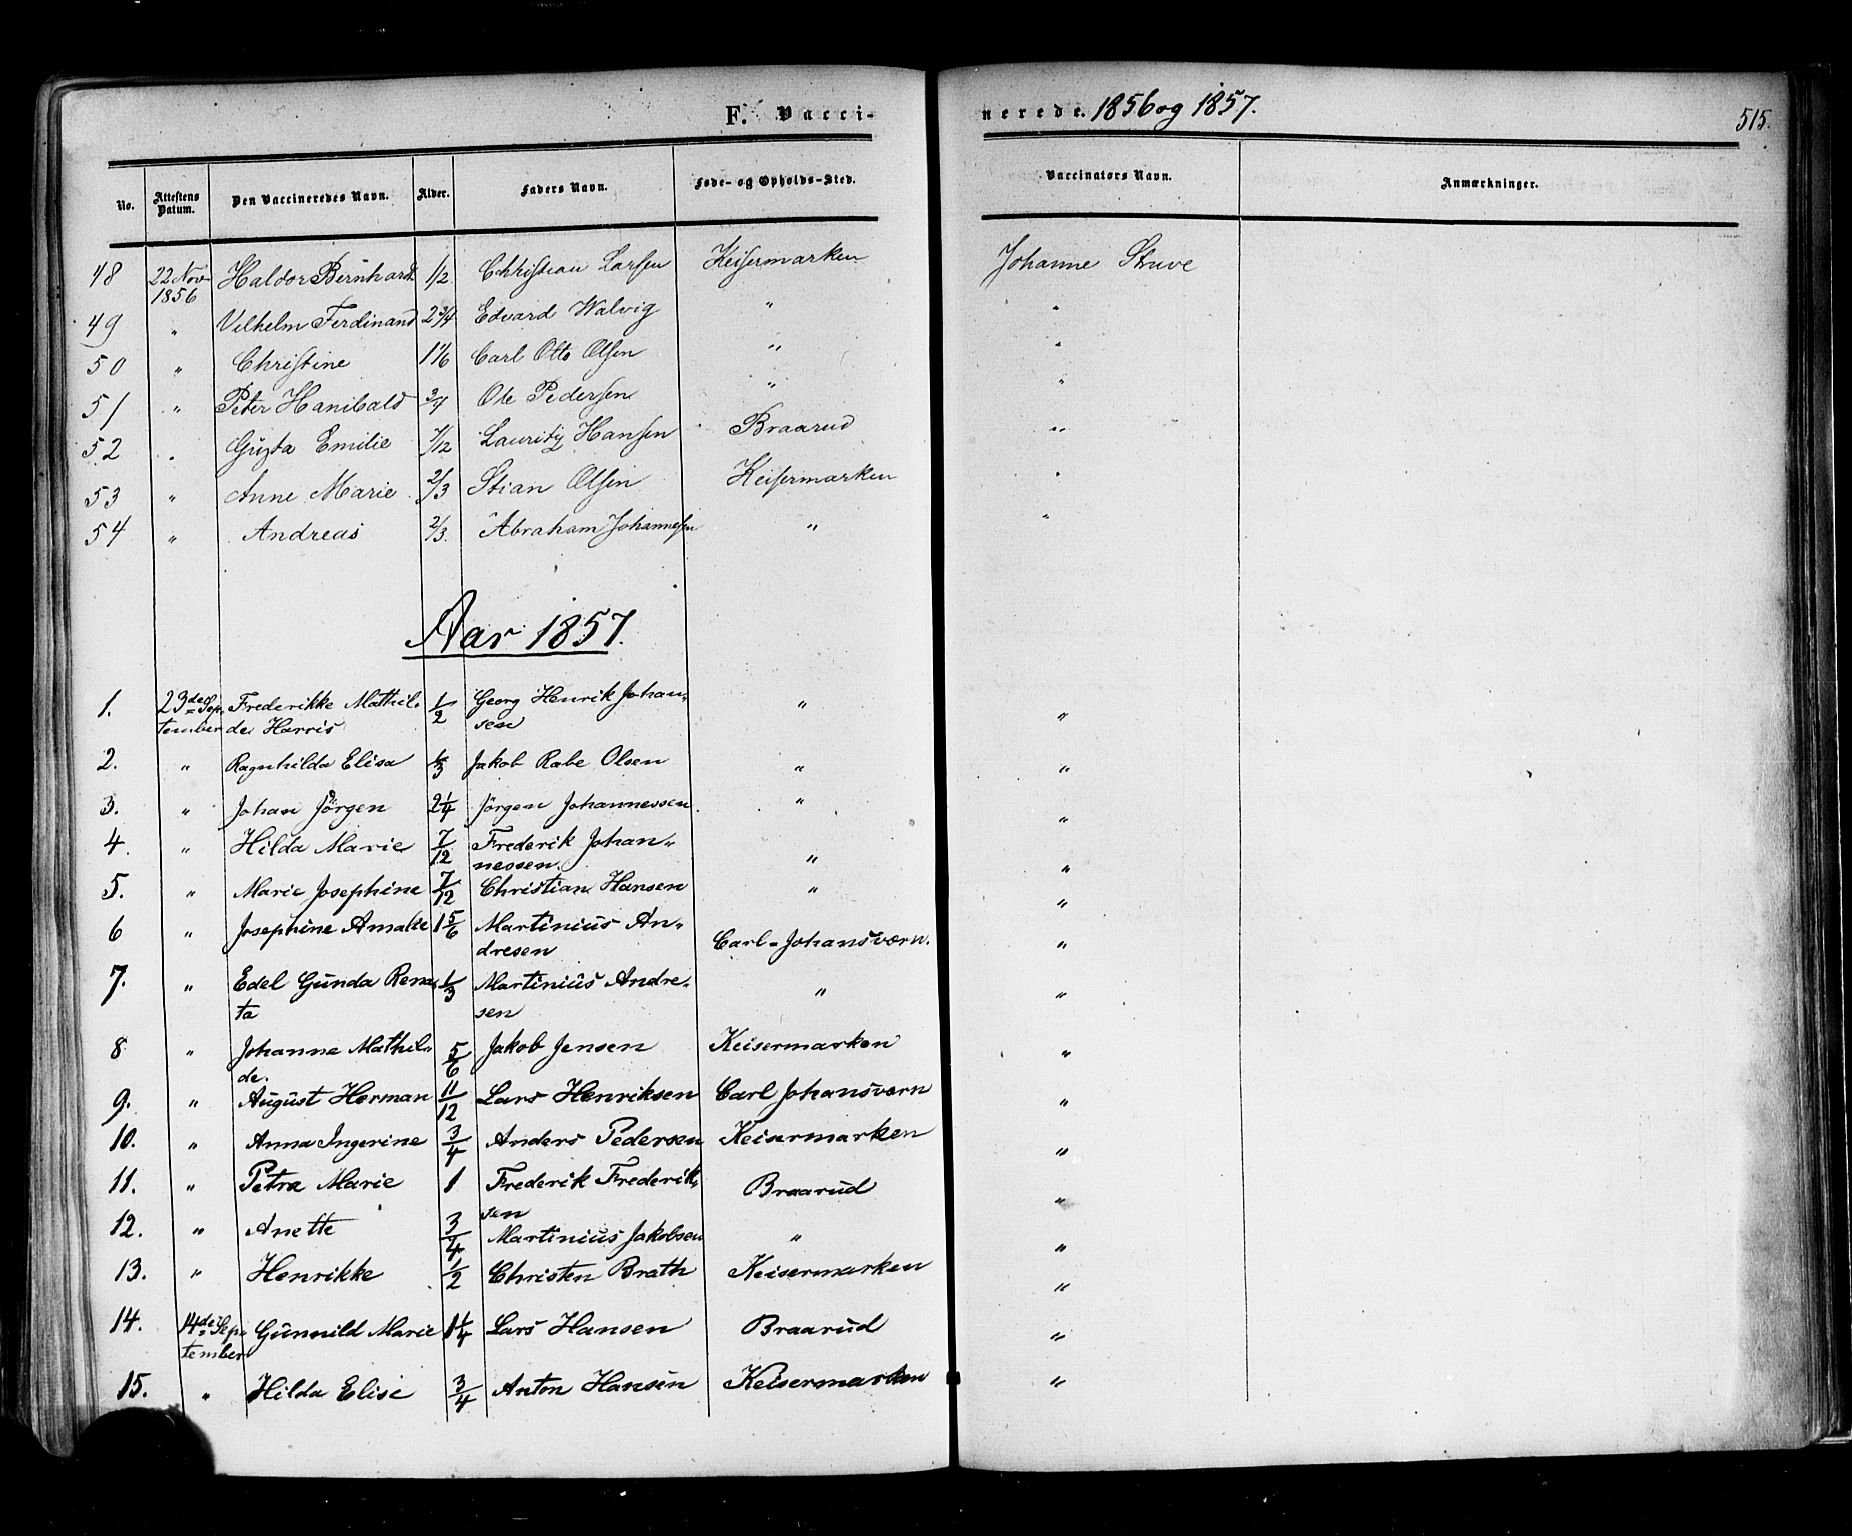 F. Vacci-
nerede. 1856 og 1857.
515.
No. Attestens Datum. Den Vaccineredes Navn. Alder. Faders Navn. Føde- og Opholds-Sted. Vaccinators Navn. Anmærkninger.
48 22 Nov 1856 Haldor Bernhardt 1/2 Christian Larsen Keisermarken Johanne Struve
49 " Vilhelm Ferdinand 2 3/4 Edvard Walvig " "
50 " Christine 1 1/6 Carl Otto Olsen " "
51 " Peter Hanibald 3/4 Ole Pedersen " "
52 " Gusta Emilie 7/12 Lauritz Hansen Braarud "
53 " Anne Marie 2/3 Stian Olsen Keisermarken "
54 " Andreas 2/3. Abraham Johannesen " "
Aar 1857.
1. 23de Sep- Frederikke Mathil- 1/2 Georg Henrik Johan- " "
tember de Harris sen
2. " Ragnhilda Elisa 1/3 Jakob Rabe Olsen " "
3. " Johan Jörgen 2 1/4 Jörgen Johannessen " "
4. " Hilda Marie 7/12 Frederik Johan- " "
nessen.
5. " Marie Josephine 7/12 Christian Hansen " "
6 " Josephine Amalie 1 5/6 Martinius An- Carl-Johansværn. "
dresen
7. " Edel Gunda Rena- 1/3 Martinius Andre- " "
ta sen
8 " Johanne Mathil- 5/6 Jakob Jensen Keisermarken "
de.
9. " August Herman 11/12 Lars Henriksen Carl Johansværn "
10. " Anna Ingerine 3/4 Anders Pedersen Keisermarken "
11. " Petra Marie 1 Frederik Frederik- Braarud "
sen
12. " Anette 3/4 Martinius Jakobsen " "
13. " Henrikke 1/2 Christen Brath Keisermarken "
14. 14de Sep- Gunnild Marie 1 1/4 Lars Hansen Braarud "
tember
15. " Hilda Elise 3/4 Anton Hansen Keisermarken "